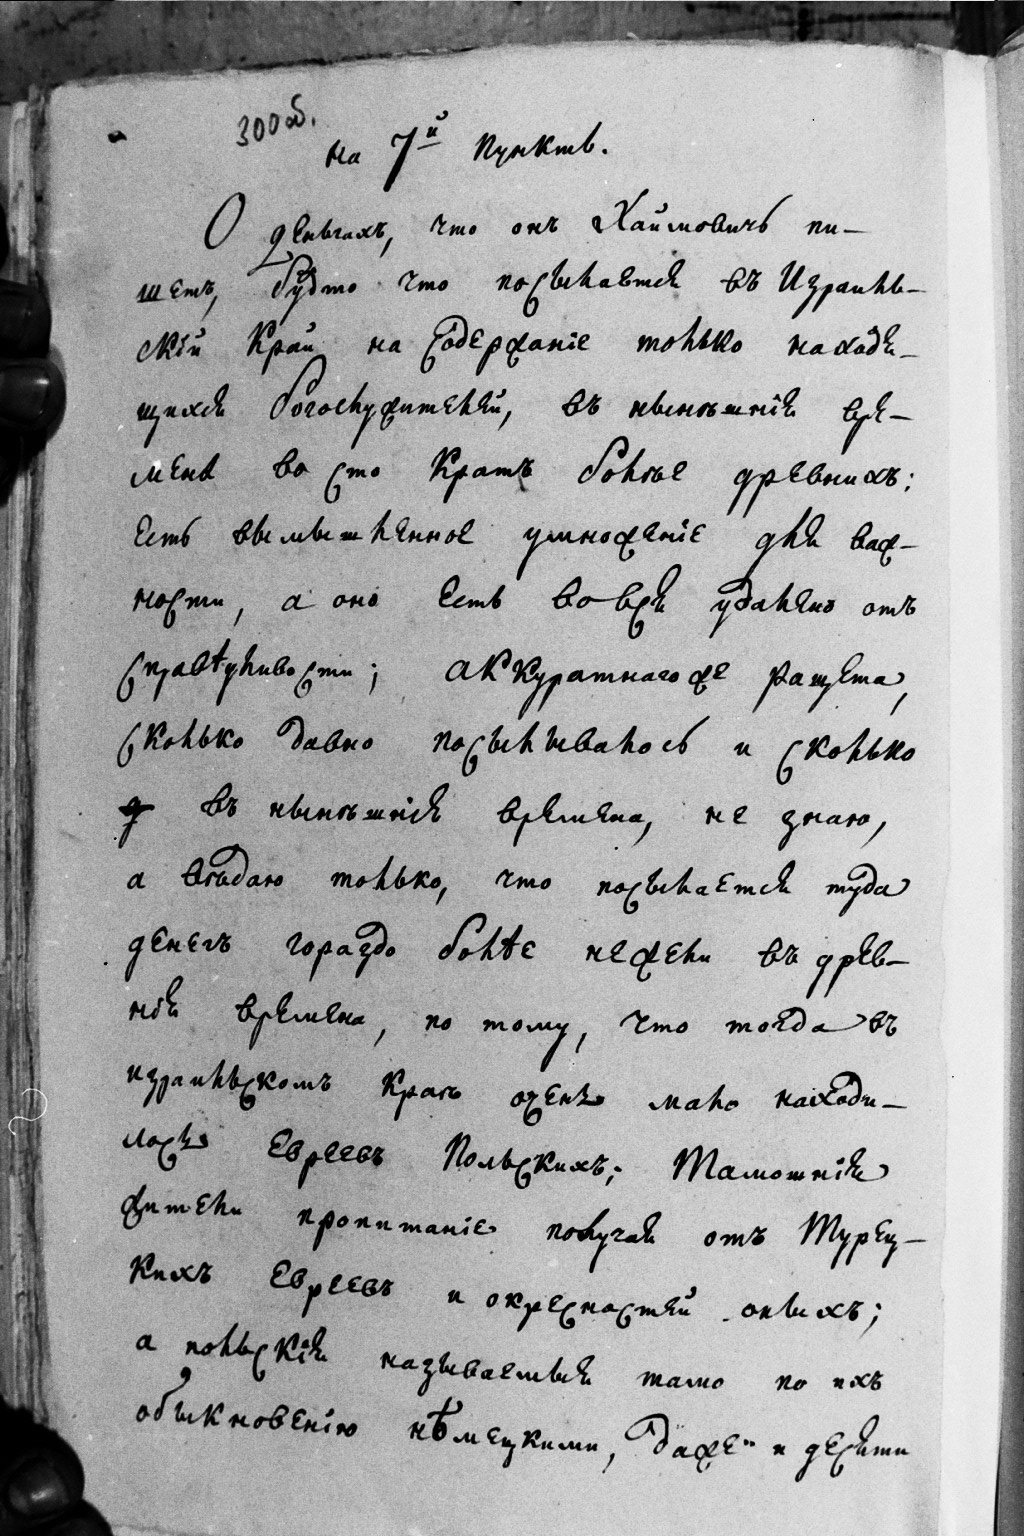 300об.
на 7й пунктъ.
О деньгахъ, что онъ Хаймовичь пи-
шетъ, будто что посылается въ Израиль-
скій край на содержаніе только находя-
щихся богослужителей, въ нынѣшнія вре-
мена во сто кратъ болѣе древнихъ;
есть вымышленное умноженіе для важ-
ности, а оно есть во вся удалено отъ
справѣдливости; аккуратнагоже ращета,
сколько давно посылывалось и сколько
въ нынѣшнія времена, не знаю,
а вѣдаю только, что посылается туда
денегъ гораздо болѣе нежели въ древ-
нія времена, по тому, что тогда въ
израильскомъ краѣ очень мало находи-
лось Евреевъ Польскихъ; Тамошнія
жители пропитаніе получая отъ Турец-
кихъ Евреевъ и окресностей оныхъ;
а польскія называемыя тамо по ихъ
обыкновенію нѣмецкими, даже и десяти